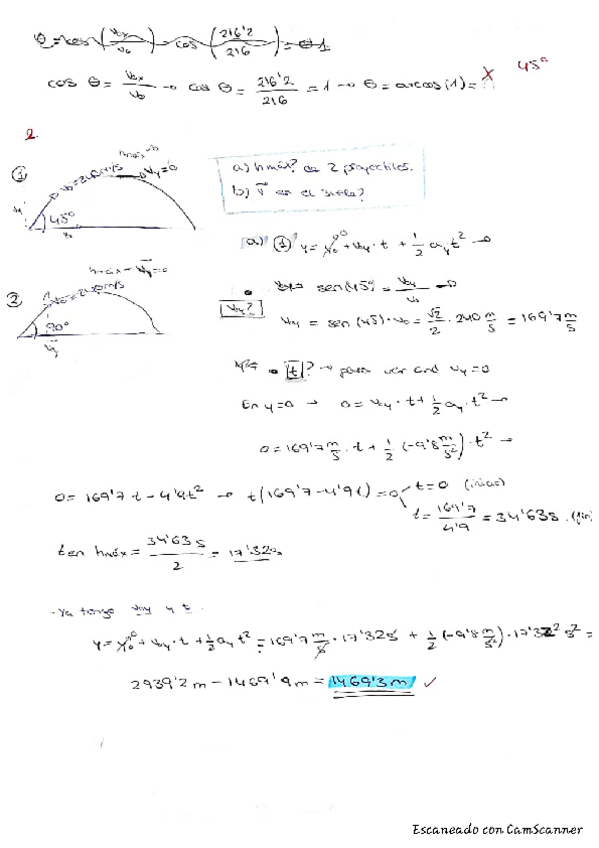 θ = cos (v₀ₓ/v₀) - cos (216'2/216) = 1
cos θ = v₀ₓ/v₀ → cos θ = 216'2/216 = 1 → θ = arcos(1) = X 45°
2.
① v₀=240m/s hmáx vy=0
45°
a) hmáx? de 2 proyectiles.
b) v⃗ en el suelo?
a) ① y = y₀⁰ + v₀y · t + 1/2 ay t² →
sen(45) = v₀y/v₀ →
v₀y?
v₀y = sen(45) · v₀ = √2/2 · 240 m/s = 169'7 m/s
② hmáx → vy=0
v₀=240m/s
90°
t? → para ver cnd vy=0
En y=0 → 0 = v₀y · t + 1/2 ay · t² →
0 = 169'7 m/s · t + 1/2 (-9'8 m/s²) · t² →
0 = 169'7 t - 4'9t² → t(169'7 - 4'9t) = 0 t=0 (inicio)
t = 169'7/4'9 = 34'63s (fin)
t en hmáx = 34'63s/2 = 17'32s
· Ya tengo v₀y y t.
y = y₀⁰ + v₀y · t + 1/2 ay t² = 169'7 m/s · 17'32s + 1/2 (-9'8 m/s²) · 17'32² s² =
2939'2m - 1469'9m = 1469'3m ✓
Escaneado con CamScanner